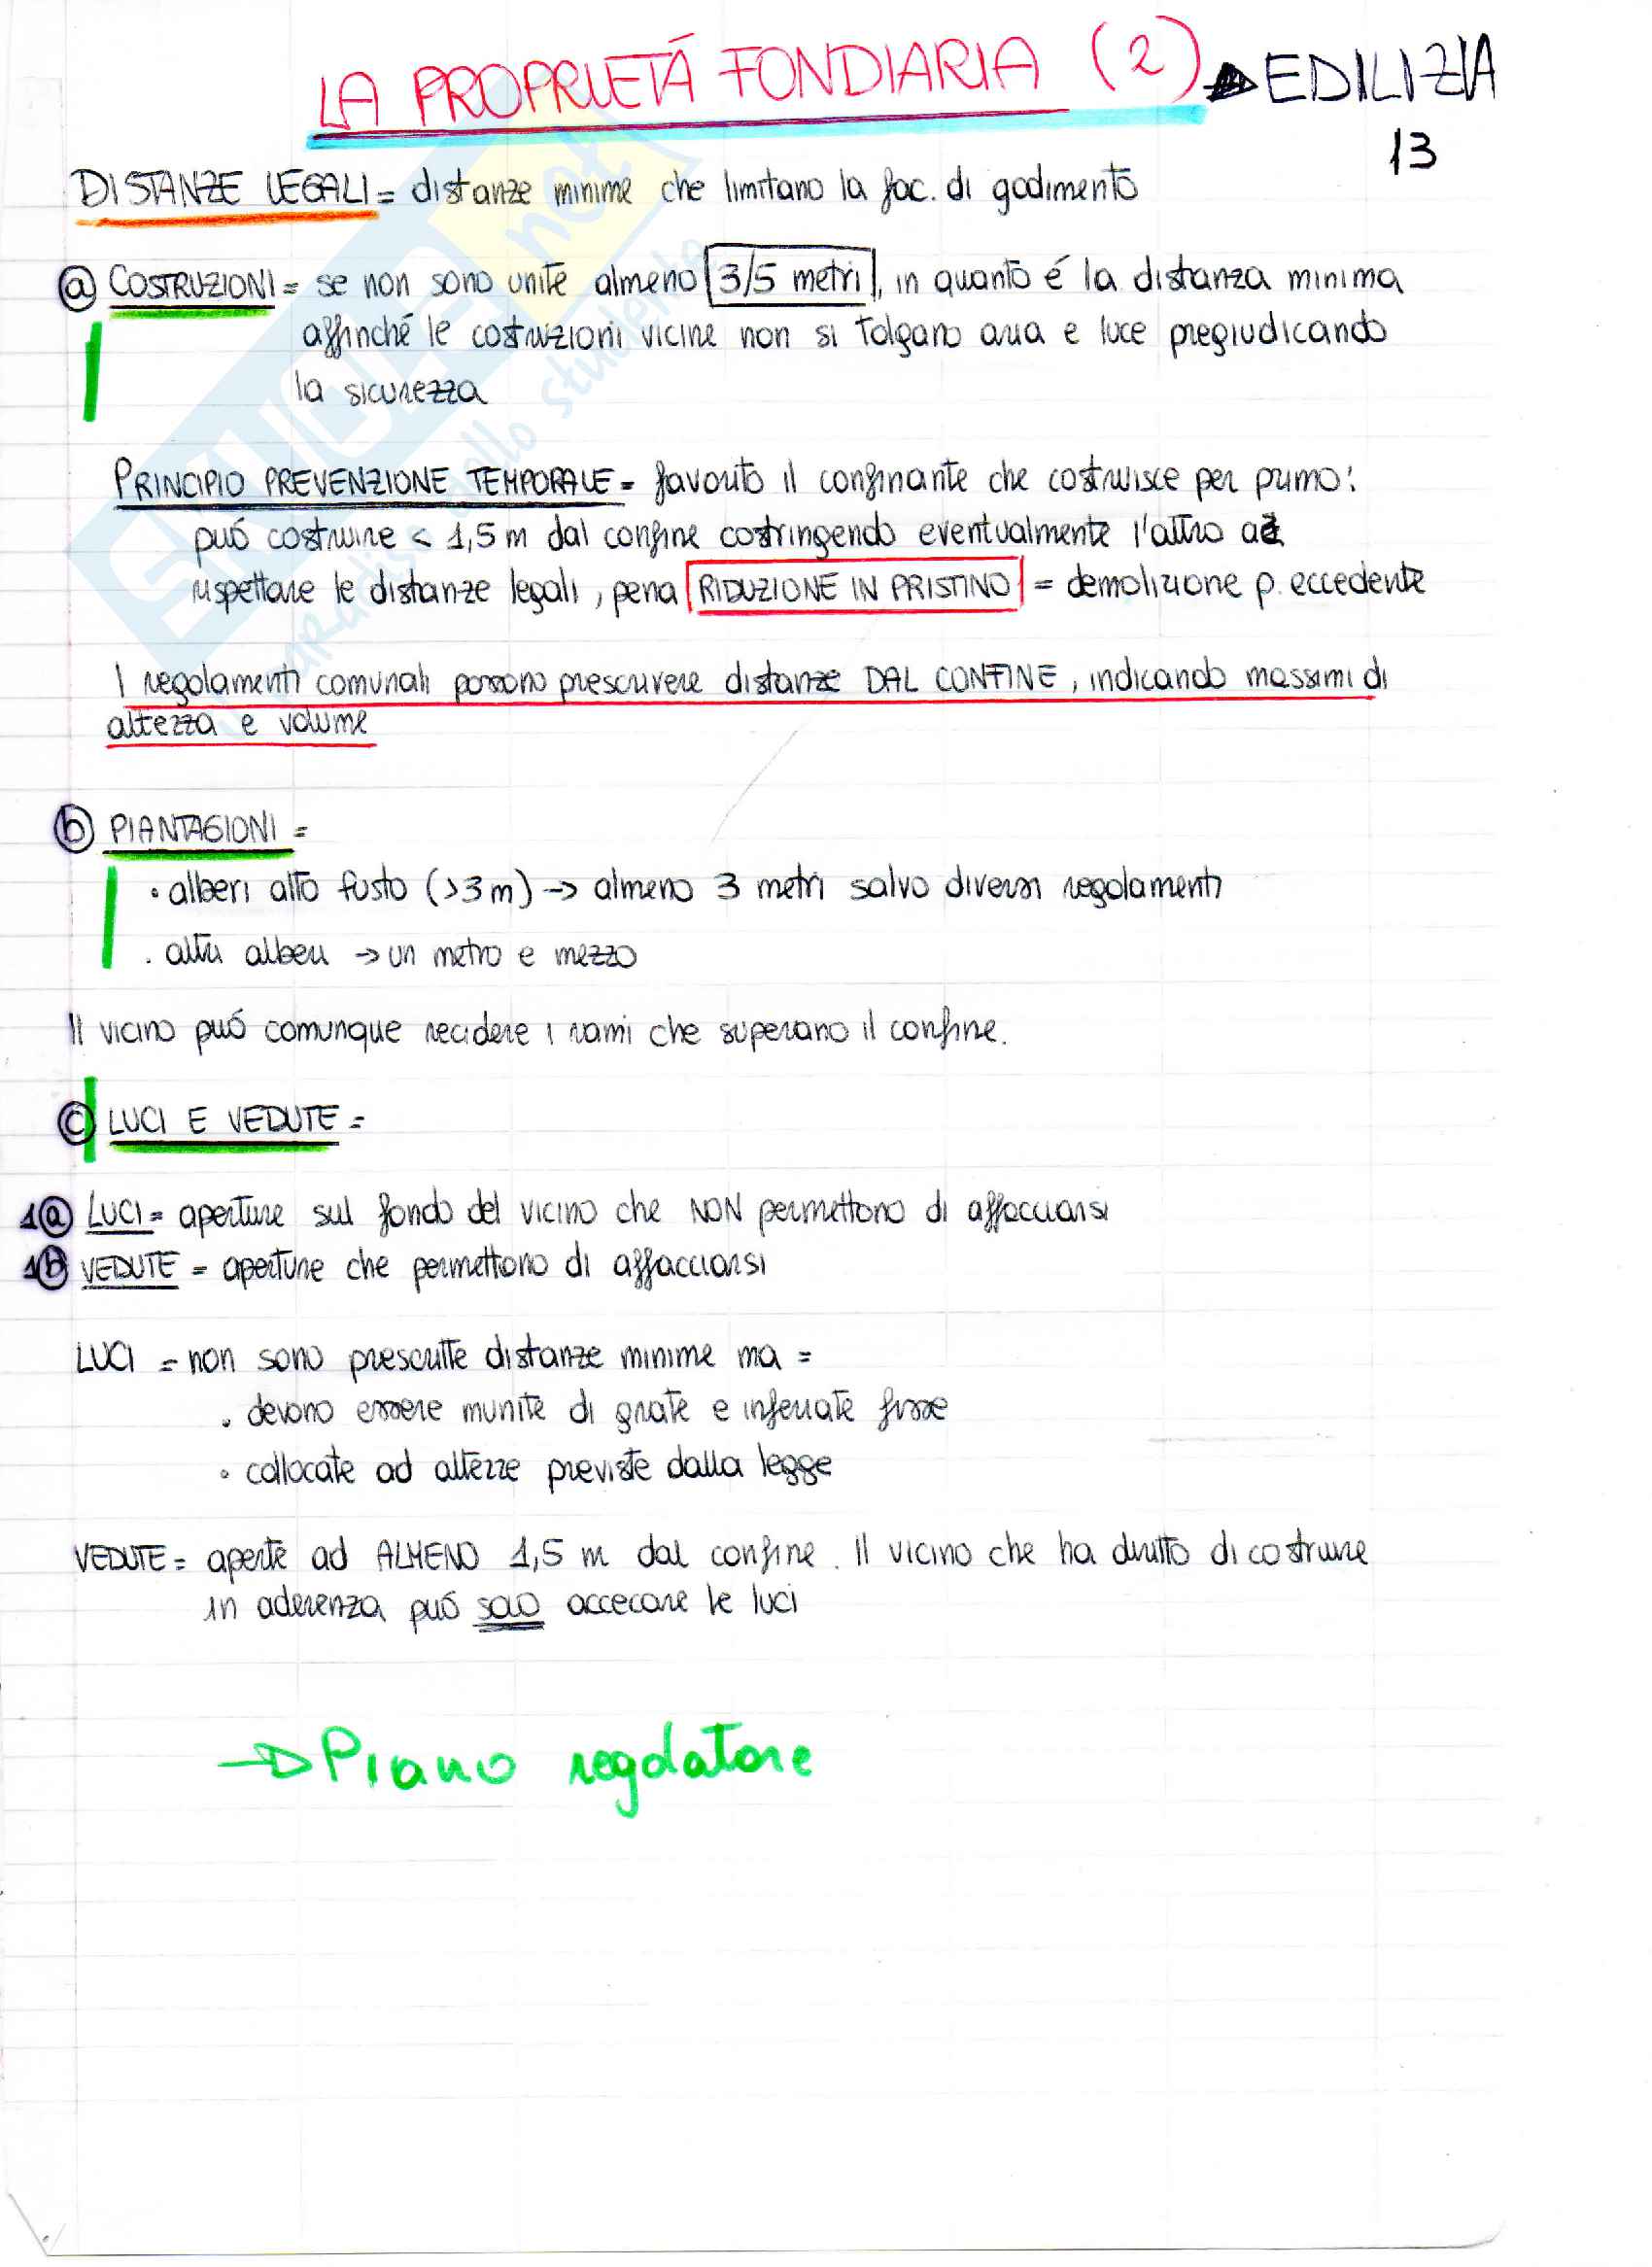 LA PROPRIETÁ FONDIARIA (2) → EDILIZIA
13
DISTANZE LEGALI = distanze minime che limitano la fac. di godimento
ⓐ COSTRUZIONI = se non sono unite almeno 3/5 metri, in quanto é la distanza minima
affinché le costruzioni vicine non si tolgano aria e luce pregiudicando
la sicurezza
PRINCIPIO PREVENZIONE TEMPORALE = favorito il confinante che costruisce per primo:
puó costruire < 1,5 m dal confine costringendo eventualmente l'altro a
rispettare le distanze legali, pena RIDUZIONE IN PRISTINO = demolizione p. eccedente
I regolamenti comunali possono prescrivere distanze DAL CONFINE, indicando massimi di
altezza e volume
ⓑ PIANTAGIONI =
• alberi alto fusto (>3 m) → almeno 3 metri salvo diversi regolamenti
• altri alberi → un metro e mezzo
Il vicino puó comunque recidere i rami che superano il confine.
ⓒ LUCI E VEDUTE =
1ⓐ LUCI = aperture sul fondo del vicino che NON permettono di affacciarsi
1ⓑ VEDUTE = aperture che permettono di affacciarsi
LUCI = non sono prescritte distanze minime ma =
• devono essere munite di grate e inferriate fisse
• collocate ad altezze previste dalla legge
VEDUTE = aperte ad ALMENO 1,5 m dal confine. Il vicino che ha diritto di costruire
in aderenza puó solo accecare le luci
→ Piano regolatore